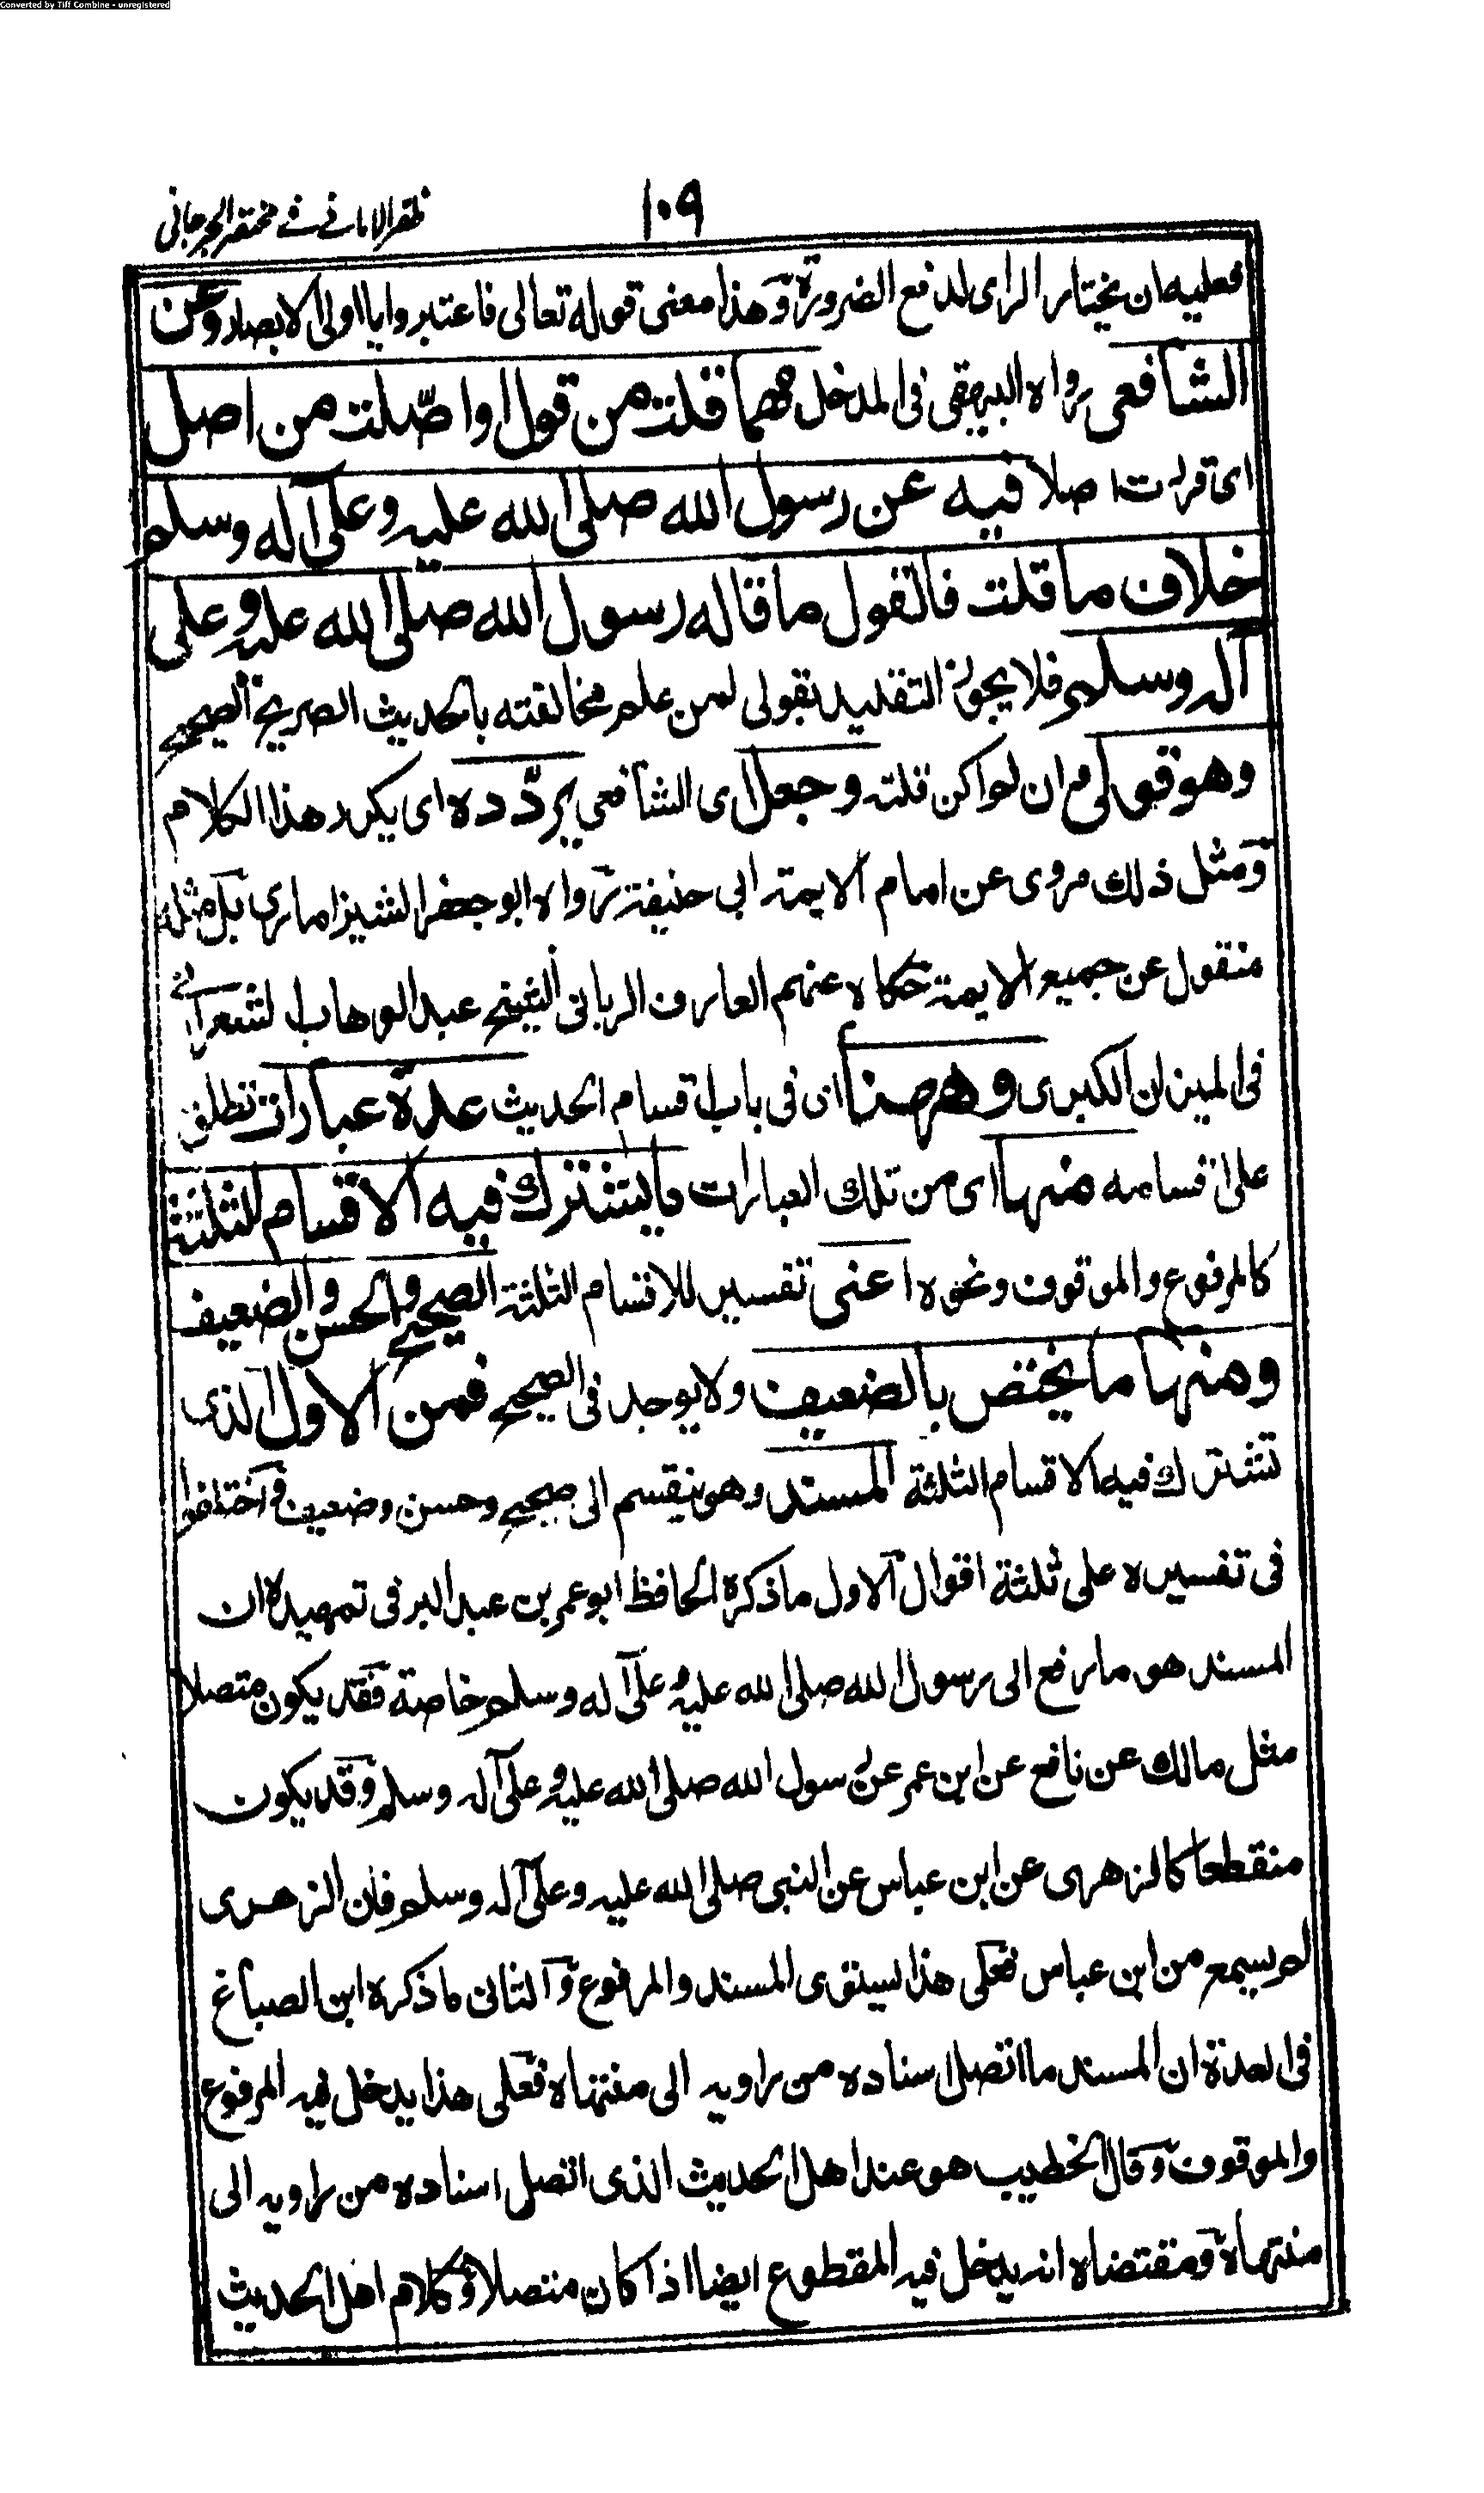 Converted by Tiff Combine - unregistered
١٠٩
ظفر الامانى فى شرح مختصر الجرجانى
فعليه ان يختار الراى لدفع الضرورة وهذا معنى قوله تعالى فاعتبروا يا اولى الابصار وعن
الشافعى رواه البيهقى فى المدخل مهما قلت من قول او اصّلت من اصل
اى قررت اصلا فيه عن رسول الله صلى الله عليه وعلى آله وسلم
خلاف ما قلت فالقول ما قاله رسول الله صلى الله عليه وعلى
آله وسلم فلا يجوز التقليد بقولى لمن علم مخالفته بالحديث الصريح الصحيح
وهو قولى وان لم اكن قلته وجعل اى الشافعى يردّده اى يكرر هذا الكلام
ومثل ذلك مروى عن امام الايمة ابى حنيفة رواه ابو جعفر الشيزامارى بل مثله
منقول عن جميع الايمة حكاه عنهم العارف الربانى الشيخ عبد الوهاب الشعرانى
فى الميزان الكبرى وههنا اى فى باب اقسام الحديث عدة عبارات تطلق
على اقسامه منها اى من تلك العبارات ما يشترك فيه الاقسام الثلثة
كالمرفوع والموقوف ونحوه اعنى تفسير للاقسام الثلثة الصحيح والحسن والضعيف
ومنها ما يختص بالضعيف ولا يوجد فى الصحيح فمن الاول الذى
تشترك فيه الاقسام الثلثة المسند وهو ينقسم الى صحيح وحسن وضعيف واختلفوا
فى تفسيره على ثلثة اقوال الاول ما ذكره الحافظ ابو عمر بن عبد البر فى تمهيده ان
المسند هو ما رفع الى رسول الله صلى الله عليه وعلى آله وسلم خاصة فقد يكون متصلا
مثل مالك عن نافع عن ابن عمر عن رسول الله صلى الله عليه وعلى آله وسلم وقد يكون
منقطعا كالزهرى عن ابن عباس عن النبى صلى الله عليه وعلى آله وسلم فان الزهرى
لم يسمع من ابن عباس فعلى هذا يستوى المسند والمرفوع والثانى ما ذكره ابن الصباغ
فى العدة ان المسند ما اتصل اسناده من راويه الى منتهاه فعلى هذا يدخل فيه المرفوع
والموقوف وقال الخطيب هو عند اهل الحديث الذى اتصل اسناده من راويه الى
منتهاه ومقتضاه انه يدخل فيه المقطوع ايضا اذا كان متصلا وكلام اهل الحديث